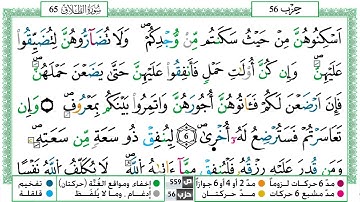 حزب 56
سورة الطلاق
65
أَسْكِنُوهُنَّ مِنْ حَيْثُ سَكَنتُم مِّن وُجْدِكُمْ وَلَا تُضَآرُّوهُنَّ لِتُضَيِّقُوا۟
عَلَيْهِنَّ وَإِن كُنَّ أُو۟لَـٰتِ حَمْلٍ فَأَنفِقُوا۟ عَلَيْهِنَّ حَتَّىٰ يَضَعْنَ حَمْلَهُنَّ
فَإِنْ أَرْضَعْنَ لَكُمْ فَـَٔاتُوهُنَّ أُجُورَهُنَّ وَأْتَمِرُوا۟ بَيْنَكُم بِمَعْرُوفٍ وَإِن
تَعَاسَرْتُمْ فَسَتُرْضِعُ لَهُۥٓ أُخْرَىٰ 6 لِيُنفِقْ ذُو سَعَةٍ مِّن سَعَتِهِۦ
وَمَن قُدِرَ عَلَيْهِ رِزْقُهُۥ فَلْيُنفِقْ مِمَّآ ءَاتَىٰهُ ٱللَّهُ لَا يُكَلِّفُ ٱللَّهُ نَفْسًا
مدّ 6 حركات لزوماً مدّ 2 أو 4 أو 6 جوازاً ص 559 إخفاء، ومواقع الغُنَّة (حركتان) تفخيم
مدّ مشبع 6 حركات مدّ حركتان حزب 56 إدغام، وما لا يُلفظ قلقلة